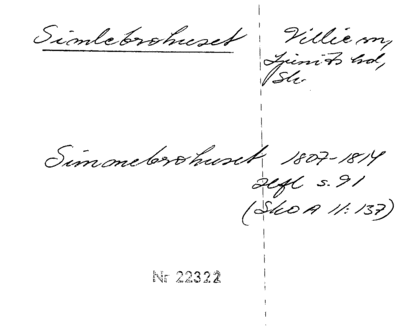 Simlebrohuset Villie sn,
Ljunits hd,
Sk.
Simonebrohuset 1807-1814
hfl s. 91
(SkOA 11:137)
Nr 22322